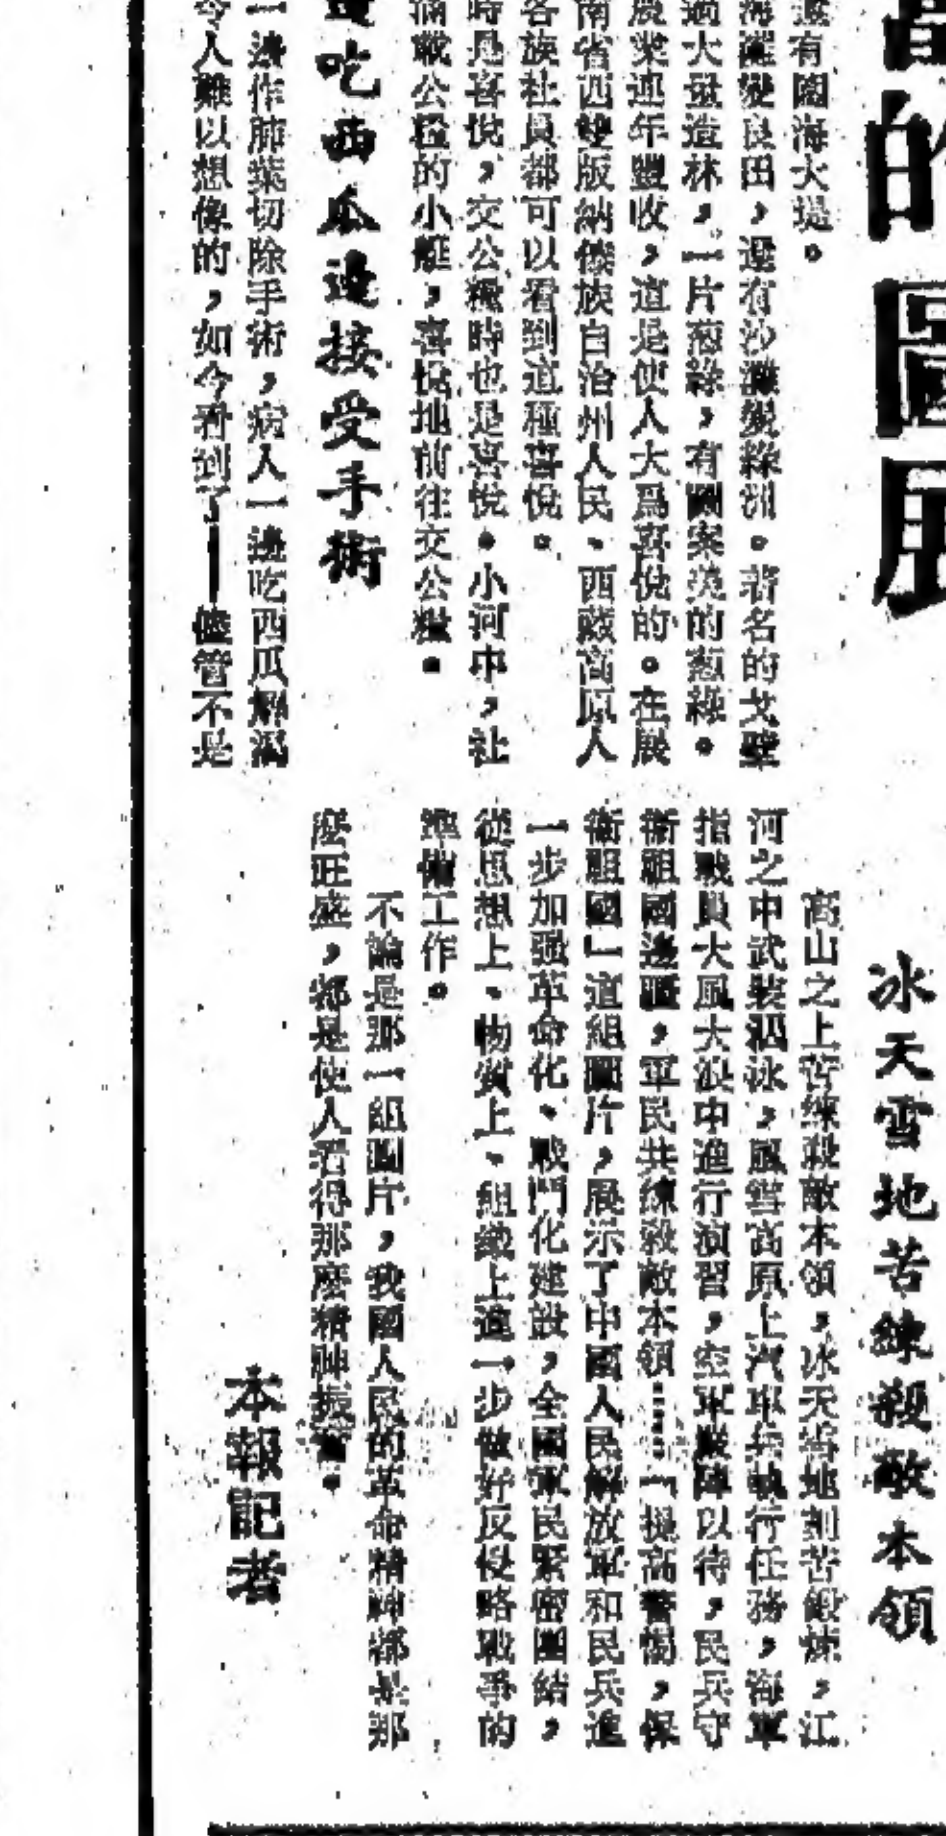 的圖展
還有圍海大堤。
灘變良田，還有沙灘變綠洲。著名的戈壁
過大量造林，一片葱綠，有圖案美的葱綠。
農業連年豐收，這是使人大爲喜悅的。在展
南省西雙版納傣族自治州人民、西藏高原人
各族社員都可以看到這種喜悅。
時是喜悅，交公糧時也是喜悅。小河中，社
滿載公糧的小艇，喜悅地前往交公糧。
邊吃西瓜邊接受手術
一邊作肺葉切除手術，病人一邊吃西瓜解渴
令人難以想像的，如今看到了——儘管不是
冰天雪地苦練殺敵本領
高山之上苦練殺敵本領，冰天雪地刻苦鍛煉，江
河之中武裝泅泳，風雪高原上汽車兵執行任務，海軍
指戰員大風大浪中進行演習，空軍嚴陣以待，民兵守
衞祖國邊疆，軍民共練殺敵本領……「提高警惕，保
衞祖國」這組圖片，展示了中國人民解放軍和民兵進
一步加强革命化、戰鬥化建設，全國軍民緊密團結，
從思想上、物質上、組織上進一步做好反侵略戰爭的
準備工作。
不論是那一組圖片，我國人民的革命精神都是那
麼旺盛，都是使人看得那麼精神振奮。
本報記者